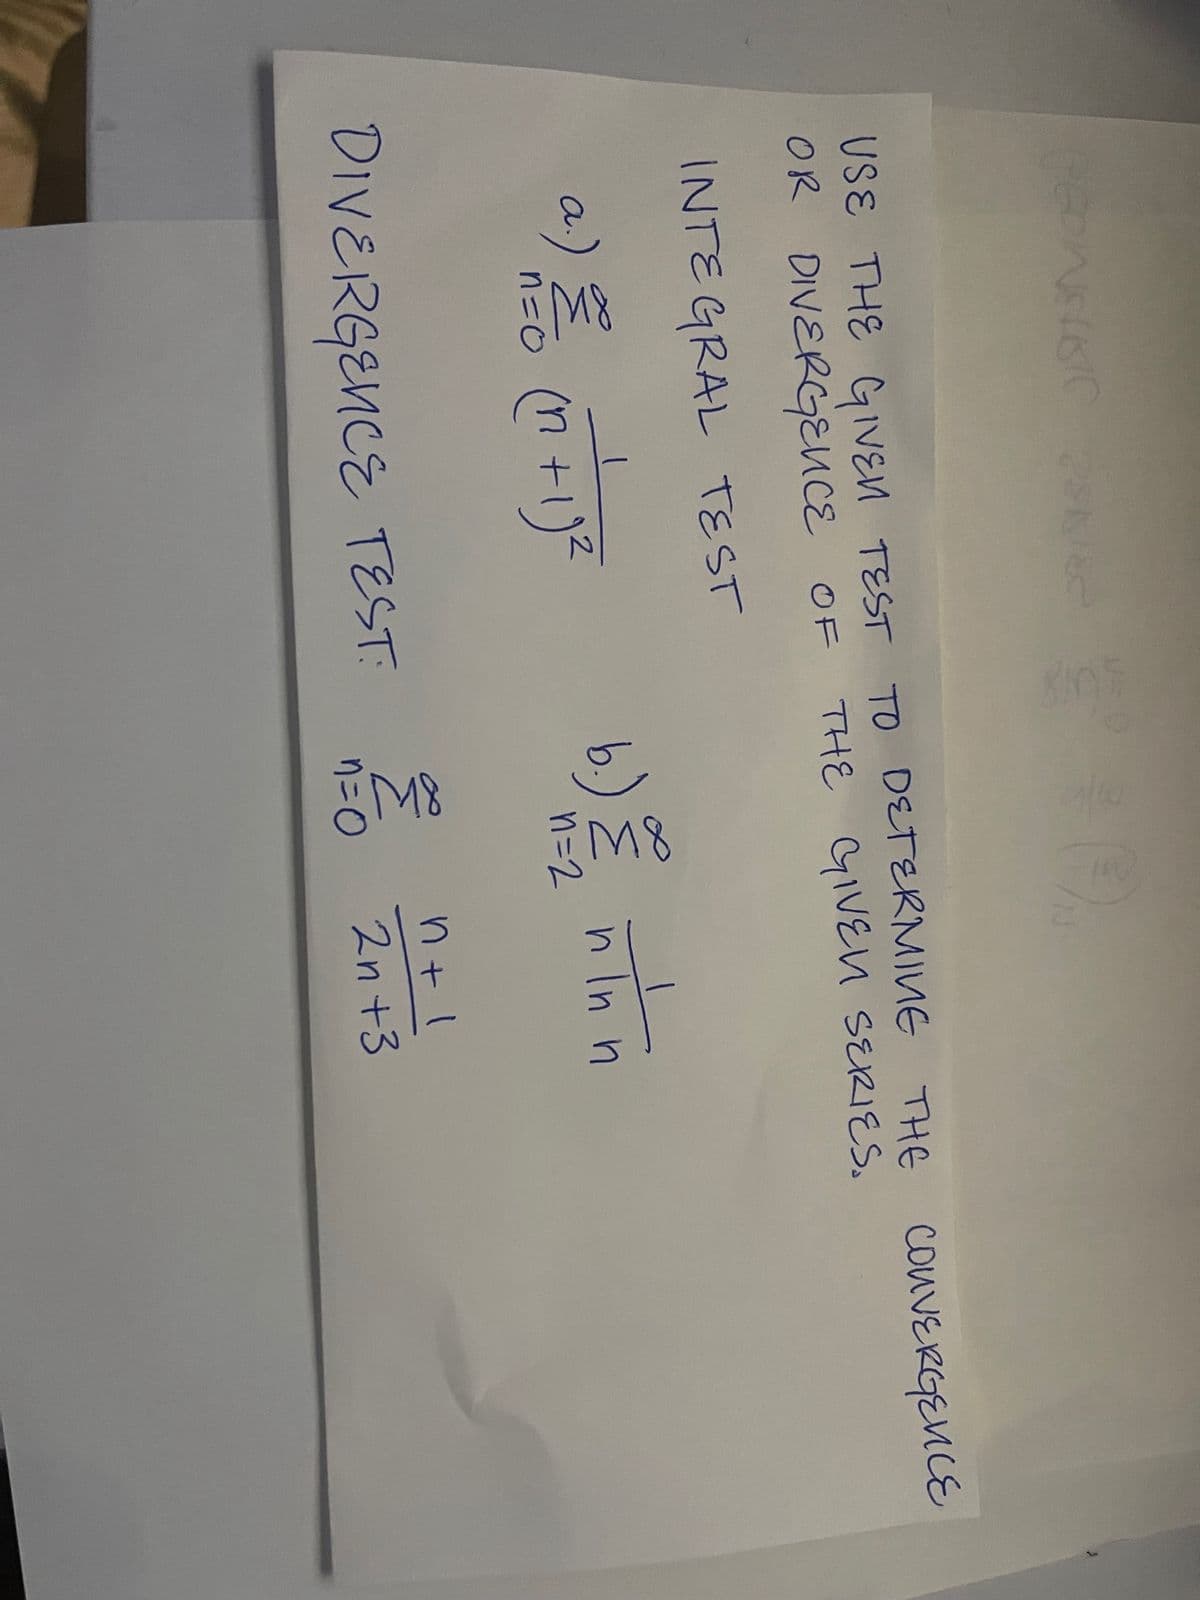 USE THE GIVEN TEST TO DETERMINE THE CONVERGENCE
OR DIVERGENCE OF THE GIVEN SERIES.
INTEGRAL TEST
a.) ∞ Σ n=0 1/(n+1)² b.) ∞ Σ n=2 1/(n ln n)
DIVERGENCE TEST: ∞ Σ n=0 (n+1)/(2n+3)